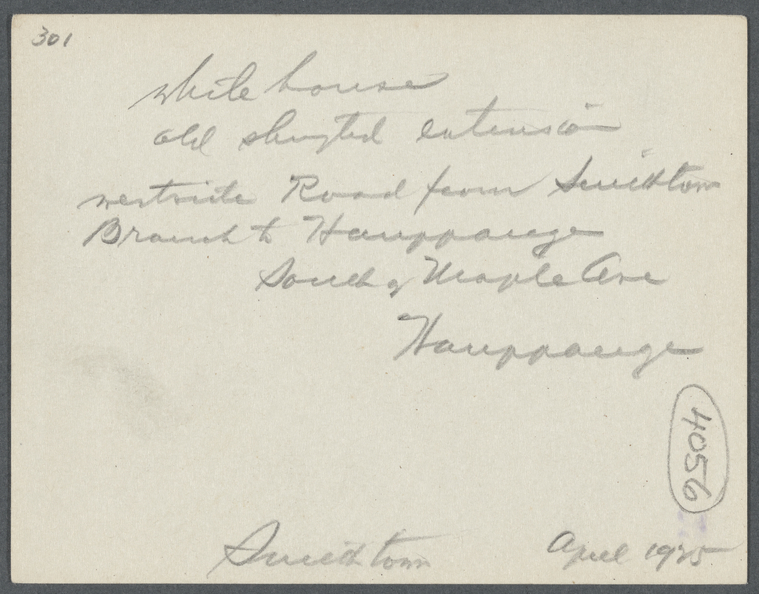 301
white house
old shingled extension
westside Road from Smithtown
Branch to Hauppauge
South of Maple Ave
Hauppauge
4056
Smithtown April 1925